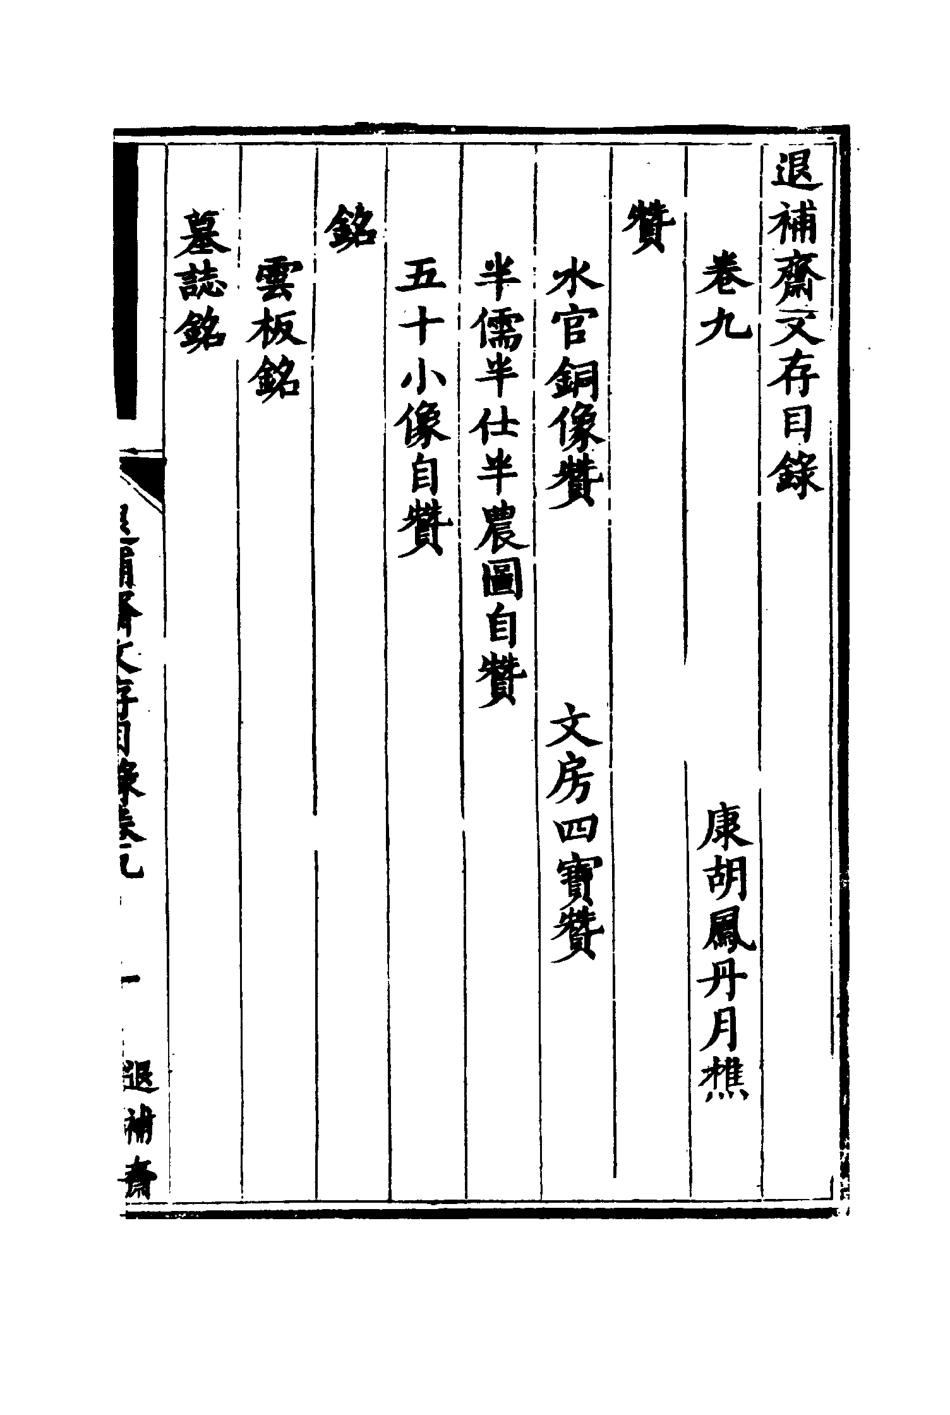 退補齋文存目錄
卷九　康胡鳳丹月樵
贊
水官銅像贊　文房四寶贊
半儒半仕半農圖自贊
五十小像自贊
銘
雲板銘
墓誌銘
退補齋文存目錄卷九　一　退補齋